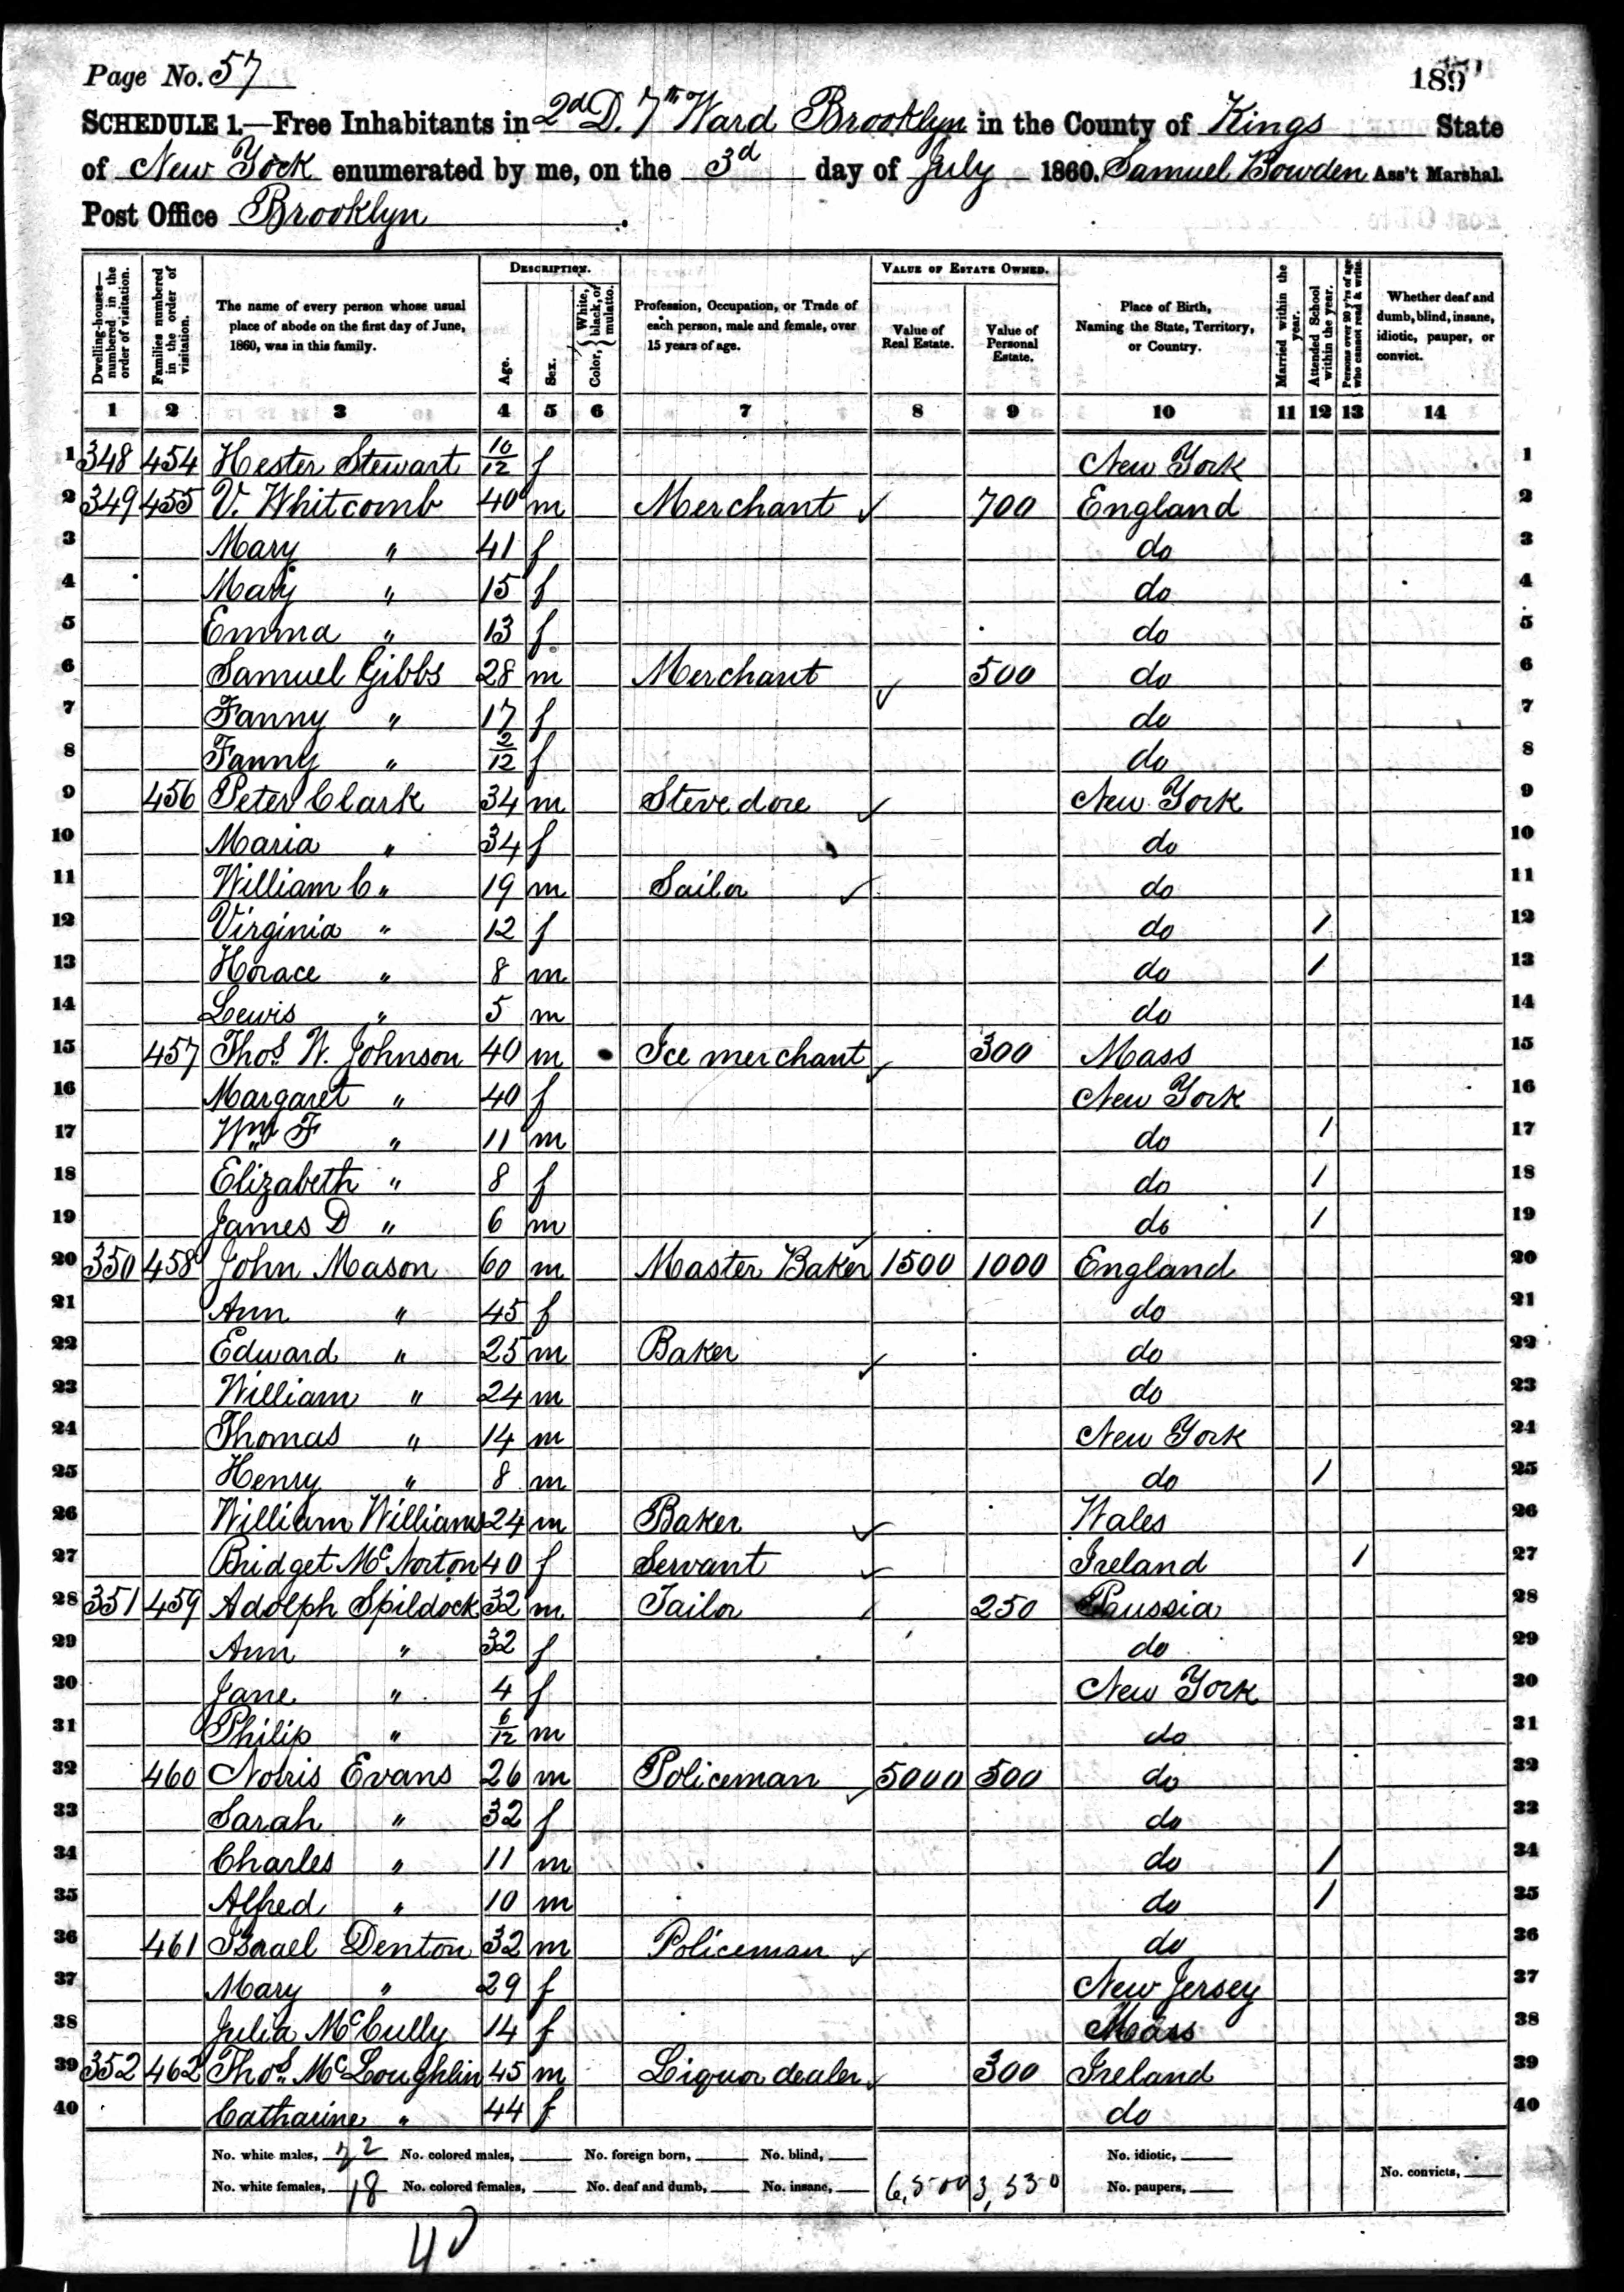 Page No. 57
189
SCHEDULE 1.—Free Inhabitants in 2d D. 7th Ward Brooklyn in the County of Kings State
of New York enumerated by me, on the 3d day of July 1860. Samuel Bowden Ass't Marshal.
Post Office Brooklyn.
DESCRIPTION. VALUE OF ESTATE OWNED.
Dwelling-houses—numbered in the order of visitation. Families numbered in the order of visitation. The name of every person whose usual place of abode on the first day of June, 1860, was in this family. Age. Sex. Color, { White, black, or mulatto. Profession, Occupation, or Trade of each person, male and female, over 15 years of age. Value of Real Estate. Value of Personal Estate. Place of Birth, Naming the State, Territory, or Country. Married within the year. Attended School within the year. Persons over 20 y'rs of age who cannot read & write. Whether deaf and dumb, blind, insane, idiotic, pauper, or convict.
1 2 3 4 5 6 7 8 9 10 11 12 13 14
1 348 454 Hester Stewart 10/12 f New York 1
2 349 455 V. Whitcomb 40 m Merchant ✓ 700 England 2
3 Mary " 41 f do 3
4 Mary " 15 f do 4
5 Emma " 13 f do 5
6 Samuel Gibbs 28 m Merchant ✓ 500 do 6
7 Fanny " 17 f do 7
8 Fanny " 2/12 f do 8
9 456 Peter Clark 34 m Stevedore ✓ New York 9
10 Maria " 34 f do 10
11 William C " 19 m Sailor ✓ do 11
12 Virginia " 12 f do / 12
13 Horace " 8 m do / 13
14 Lewis " 5 m do 14
15 457 Thos. W. Johnson 40 m Ice merchant ✓ 300 Mass 15
16 Margaret " 40 f New York 16
17 Wm F " 11 m do / 17
18 Elizabeth " 8 f do / 18
19 James D " 6 m do / 19
20 350 458 John Mason 60 m Master Baker 1500 1000 England 20
21 Ann " 45 f do 21
22 Edward " 25 m Baker ✓ do 22
23 William " 24 m do 23
24 Thomas " 14 m New York 24
25 Henry " 8 m do / 25
26 William Williams 24 m Baker ✓ Wales 26
27 Bridget McNorton 40 f Servant ✓ Ireland / 27
28 351 459 Adolph Spildock 32 m Tailor / 250 Prussia 28
29 Ann " 32 f do 29
30 Jane " 4 f New York 30
31 Philip " 6/12 m do 31
32 460 Norris Evans 26 m Policeman ✓ 5000 500 do 32
33 Sarah " 32 f do 33
34 Charles " 11 m do / 34
35 Alfred " 10 m do / 35
36 461 Isaael Denton 32 m Policeman ✓ do 36
37 Mary " 29 f New Jersey 37
38 Julia McCully 14 f Mass 38
39 352 462 Thos. McLoughlin 45 m Liquor dealer ✓ 300 Ireland 39
40 Catharine " 44 f do 40
No. white males, 22 No. colored males, No. foreign born, No. blind, No. idiotic,
No. white females, 18 No. colored females, No. deaf and dumb, No. insane, 6,500 3,550 No. paupers, No. convicts,
40